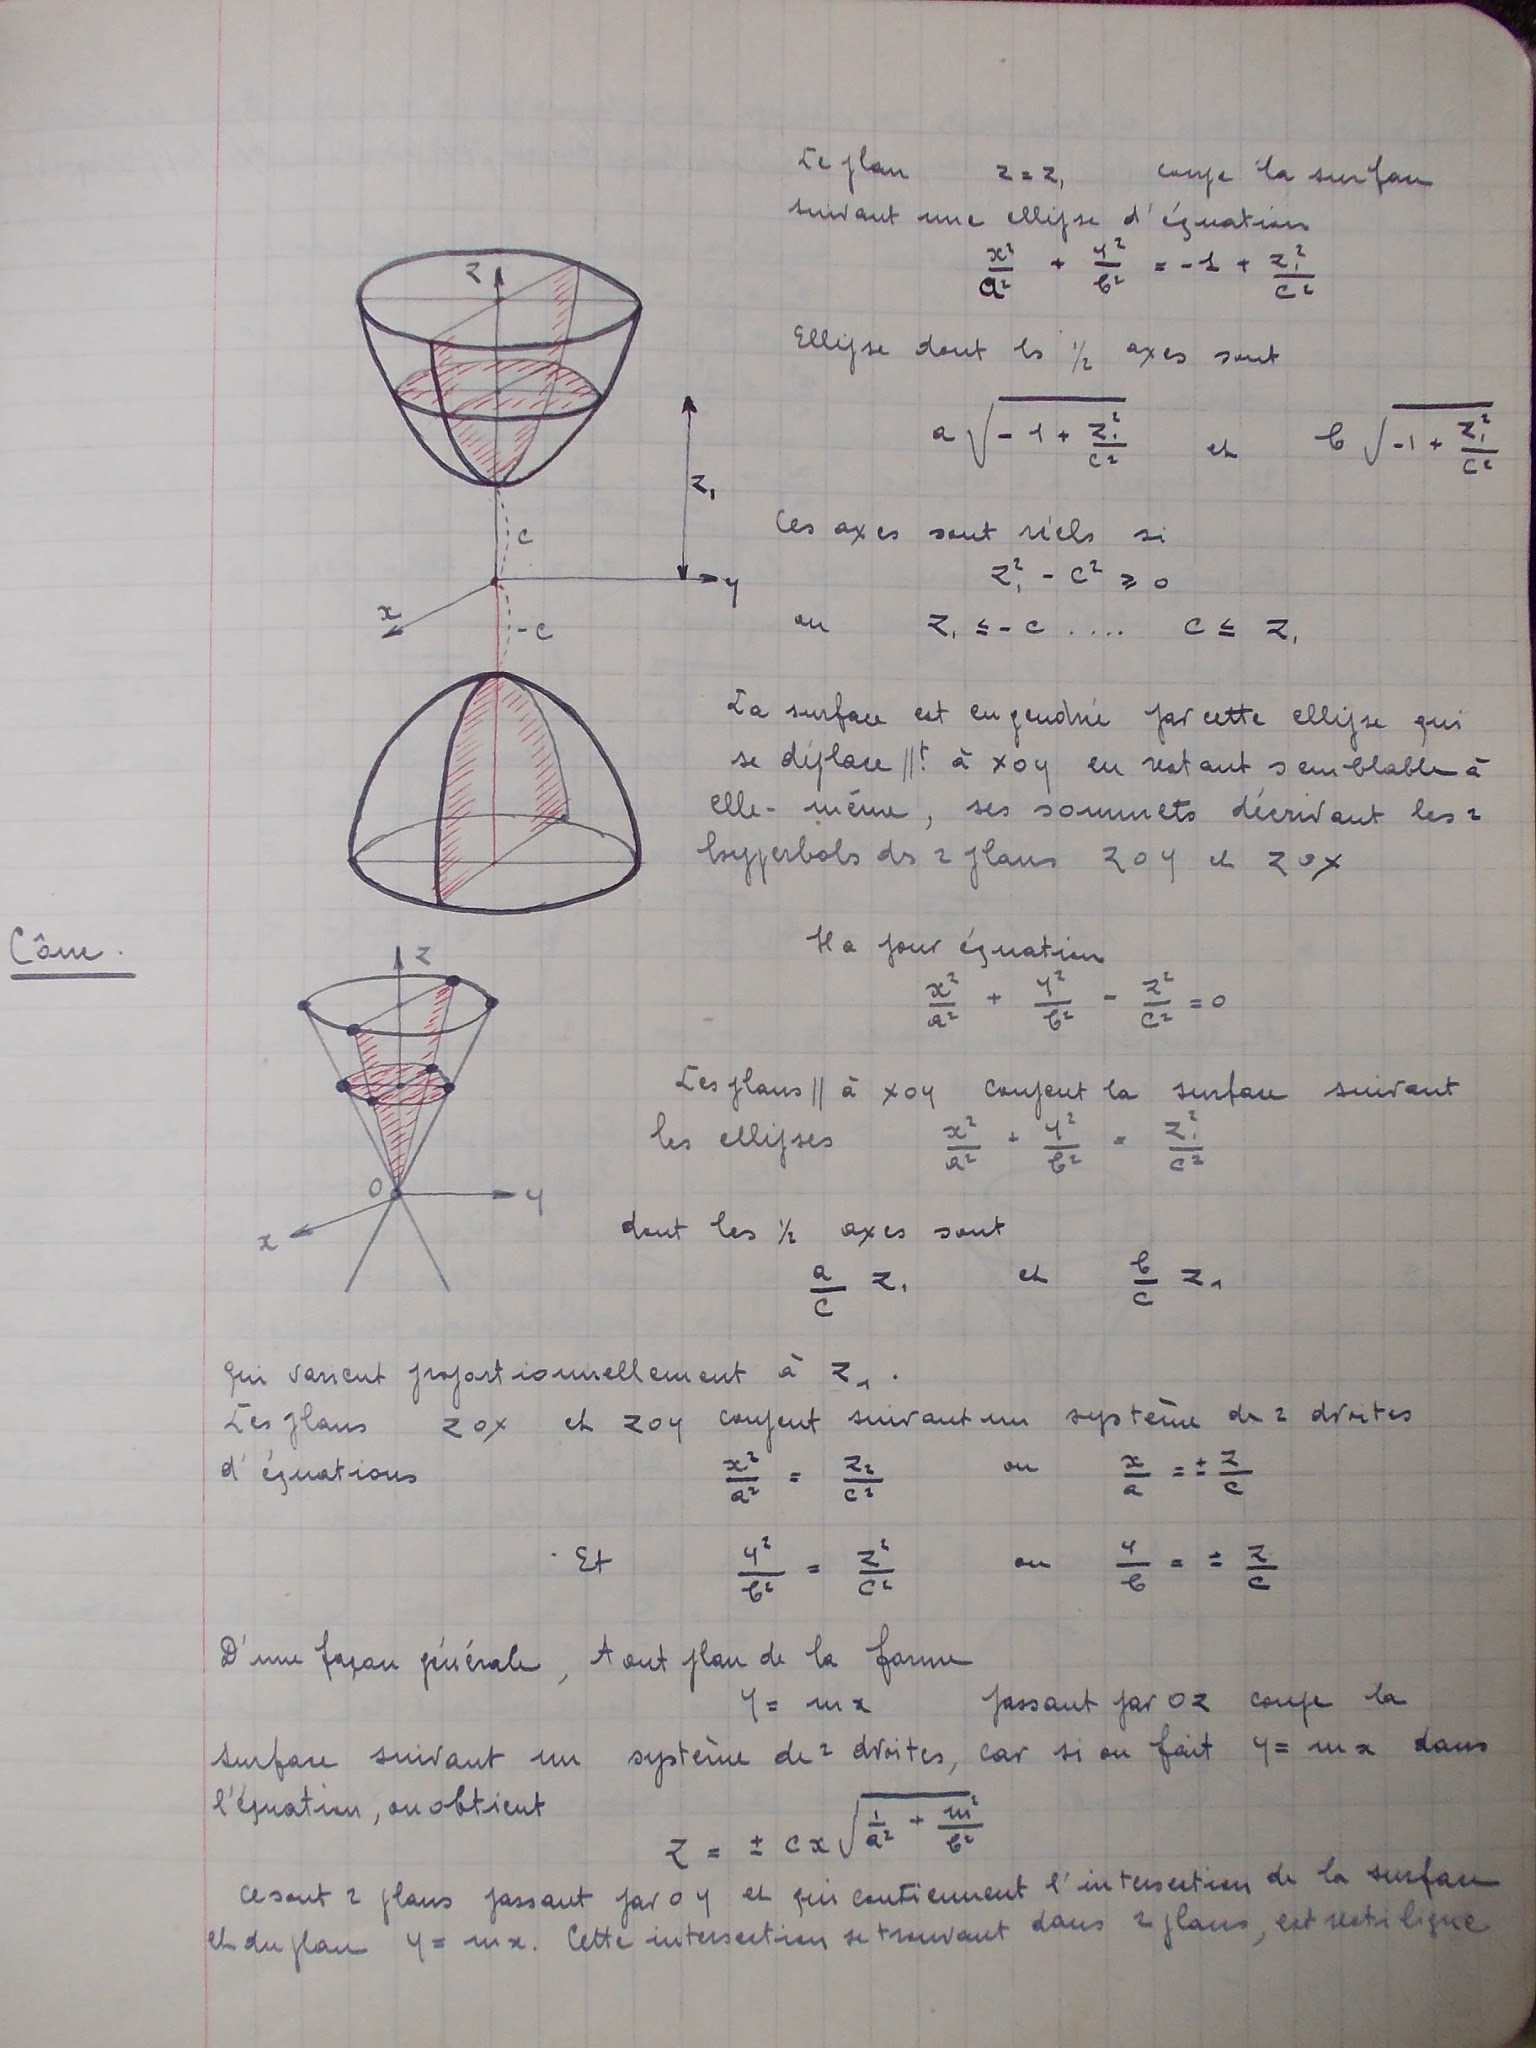 Le plan z = z₁ coupe la surface
suivant une ellipse d'équation
x²/a² + y²/b² = -1 + z₁²/c²
Ellipse dont ls 1/2 axes sont
a √(-1 + z₁²/c²) et b √(-1 + z₁²/c²)
Ces axes sont réels si
z₁² - c² ≥ 0
ou z₁ ≤ -c .... c ≤ z₁
La surface est engendrée par cette ellipse qui
se déplace //t à xoy en restant semblable à
elle-même, ses sommets décrivant les 2
hyperbols ds 2 plans zoy et zox
z
z₁
c
y
x
-c
Cône.
Il a pour équation
x²/a² + y²/b² - z²/c² = 0
Les plans // à xoy coupent la surface suivant
les ellipses x²/a² + y²/b² = z₁²/c²
dont les 1/2 axes sont
a/c z₁ et b/c z₁
z
O
y
x
qui varient proportionnellement à z₁.
Les plans zox et zoy coupent suivant un système de 2 droites
d'équations x²/a² = z₂/c² ou x/a = ± z/c
Et y²/b² = z²/c² ou y/b = ± z/c
D'une façon générale, tout plan de la forme
y = mx passant par oz coupe la
surface suivant un système de 2 droites, car si on fait y = mx dans
l'équation, on obtient
z = ± cx √(1/a² + m²/b²)
ce sont 2 plans passant par oy et qui contiennent l'intersection de la surface
et du plan y = mx. Cette intersection se trouvant dans 2 plans, est rectiligne